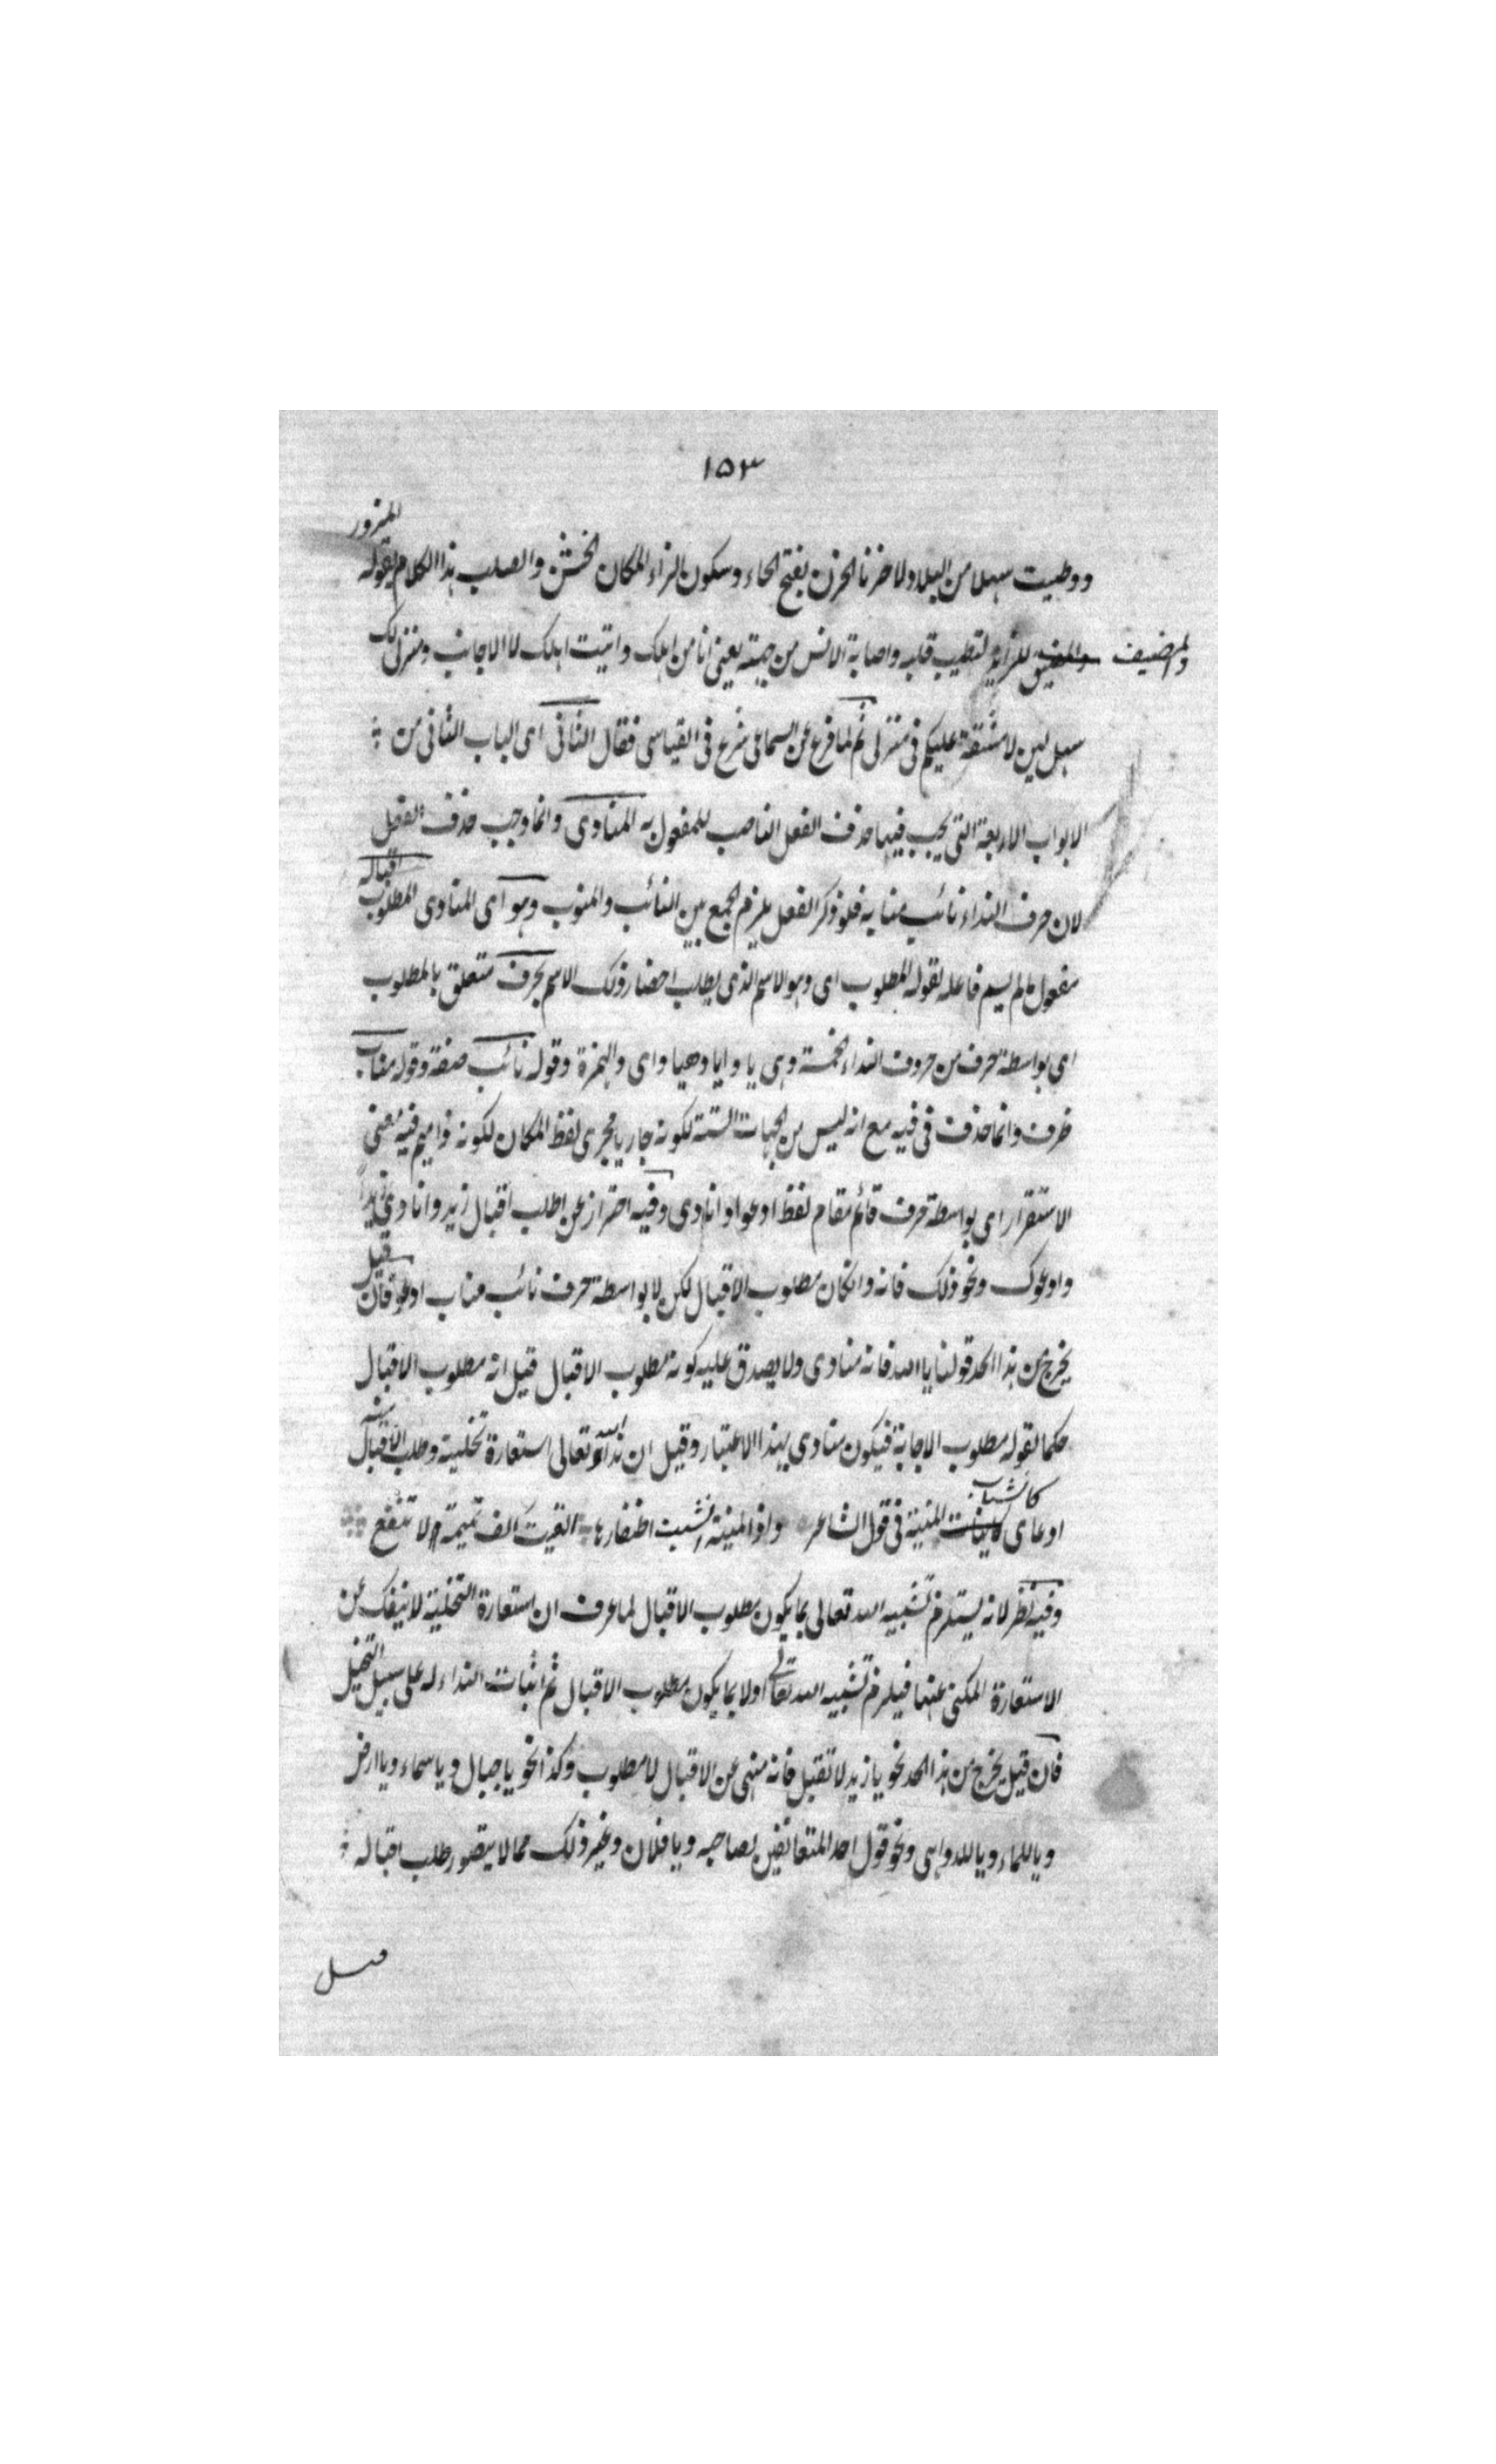 ١٥٣
ووطيت سهلا من البلاد ولا حزنا الحزن بفتح الحاء وسكون الزاء المكان الخشن والصلب هذا الكلام يقوله المزور
والمضيف للزائر لتطييب قلبه واصابة الانس من جهته يعني انا من اهلك واتيت اهلك لا الاجانب ومنزلي لك
سهل لين لا مشقة عليكم في منزلي ثم لما فرغ عن السماعي شرع في القياسي فقال الثاني اى الباب الثاني من
الابواب الاربعة التي يجب فيها حذف الفعل الناصب للمفعول به المنادى وانما وجب حذف الفعل
لان حرف النداء نائب منابه فلو ذكر الفعل يلزم الجمع بين النائب والمنوب وهو اى المنادى المطلوب اقباله
مفعول ما لم يسم فاعله لقوله المطلوب اى وهو الاسم الذى يطلب احضار ذلك الاسم بحرف متعلق بالمطلوب
اى بواسطة حرف من حروف النداء الخمسة وهى يا وايا وهيا واى والهمزة وقوله نائب صفة وقوله مناب
ظرف وانما حذف في فيه مع انه ليس من الجهات الستة لكونه جاريا مجرى لفظ المكان لكونه ذا ميم فيه معنى
الاستقرار اى بواسطة حرف قائم مقام لفظ ادعوا او انادى وفيه احتراز عن اطلب اقبال زيد وانادى زيداً
وادعوك ونحو ذلك فانه وانكان مطلوب الاقبال لكن لا بواسطة حرف نائب مناب ادعو فان قيل
يخرج من هذا الحد قولنا يا الله فانه منادى ولا يصدق عليه كونه مطلوب الاقبال قيل انه مطلوب الاقبال
حكما لقوله مطلوب الاجابة فيكون منادى بهذا الاعتبار وقيل ان نداء الله تعالى استعارة تخلية وطلب الاقبال منه
ادعاى كانشاب المنية في قول الشاعر واذا المنية انشبت اظفارها الفيت الف تميمة لا تنفع
وفيه نظر لانه يستلزم تشبيه الله تعالى بما يكون مطلوب الاقبال لما عرف ان استعارة التخلية لا ينفك عن
الاستعارة المكنى عنها فيلزم تشبيه الله تعالى اولا بما يكون مطلوب الاقبال ثم اثبات النداء له على سبيل التخيل
فان قيل يخرج من هذا الحد نحو يا زيد لا تقبل فانه منهى عن الاقبال لا مطلوب وكذا نحو يا جبال ويا سماء ويا ارض
ويا للماء ويا للدواهى ونحو قول احد المتعانقين لصاحبه ويا فلان وغير ذلك مما لا يتصور طلب اقباله
قيل